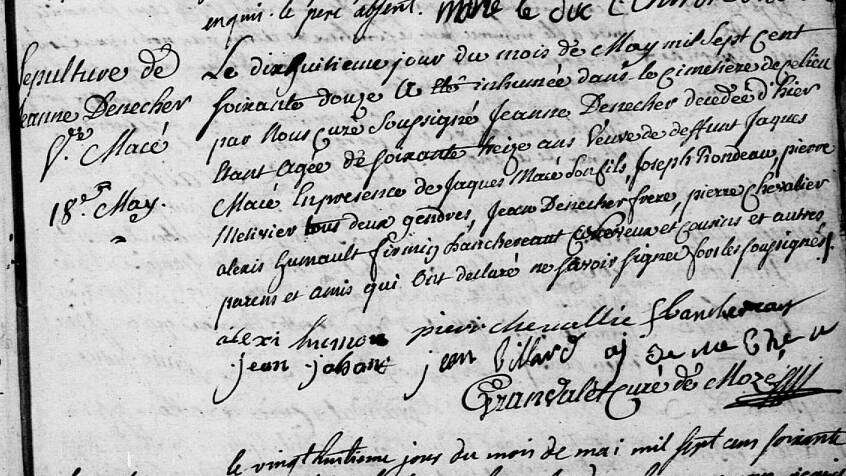 enquis. le pere absent.
Sepulture de
Jeanne Denecher
Vve. Macé
18e. May.
Le dix huitieme jour du mois de May mil Sept Cent
soixante douze a été inhumée dans le Cimetière de ce lieu
par Nous Curé Soussigné Jeanne Denecher decedée d'hier
Etant agée de soixante treize ans Veuve de deffunt Jaques
Macé En presence de Jaques Macé son fils, Joseph Rondeau, pierre
Metivier tous deux gendres, Jean Denecher frere, pierre Chevalier
alexis humault firmin banchereau et cousins et autres
parens et amis qui ont declaré ne savoir signer fors les soussignés
alexi humau pierre chevallié f bancheraux
jean jahant jean Pillard
Granvalet Curé de Mozé
le vingt huitieme jours du mois de mai mil sept cens soixante